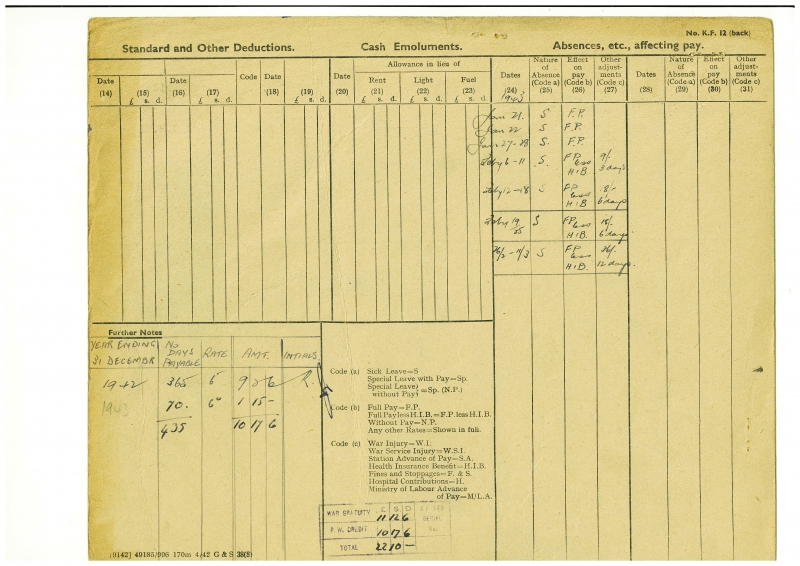 No. K.F. 12 (back)
Standard and Other Deductions. Cash Emoluments. Absences, etc., affecting pay.
Date (14)
(15) £ s. d.
Date (16)
(17) £ s. d.
Code
Date (18)
(19) £ s. d.
Date (20)
Allowance in lieu of
Rent (21) £ s. d.
Light (22) £ s. d.
Fuel (23) £ s. d.
Dates (24)
Nature of Absence (Code a) (25)
Effect on pay (Code b) (26)
Other adjustments (Code c) (27)
Dates (28)
Nature of Absence (Code a) (29)
Effect on pay (Code b) (30)
Other adjustments (Code c) (31)
1943
Jan 21. S F.P.
Jan 22 S F.P.
Jan 27-28 S. F.P.
Feby 6-11 S. FP less H.I.B 9/- 3 days
Feby 12-18 S FP less H.I.B 18/- 6 days
Feby 19/25 S FP less H.I.B. 18/- 6 days
26/2-11/3 S FP less H.I.B. 36/- 12 days.
Further Notes
YEAR ENDING 31 DECEMBR NO DAYS PAYABLE RATE AMT. INITIALS
1942 365 6 9 2 6
1943 70. 6d 1 15 -
435 10 17 6
Code (a) Sick Leave=S
Special Leave with Pay=Sp.
Special Leave without Pay }=Sp. (N.P.)
Code (b) Full Pay=F.P.
Full Pay less H.I.B.=F.P. less H.I.B.
Without Pay=N.P.
Any other Rates=Shown in full.
Code (c) War Injury=W.I.
War Service Injury=W.S.I.
Station Advance of Pay=S.A.
Health Insurance Benefit=H.I.B.
Fines and Stoppages=F. & S.
Hospital Contributions=H.
Ministry of Labour Advance
of Pay=M/L.A.
£ S D
WAR GRATUITY 11 12 6
P.W. CREDIT 10 17 6
TOTAL 22 10 -
[9142] 49185/906 170m 4/42 G & S 38(8)